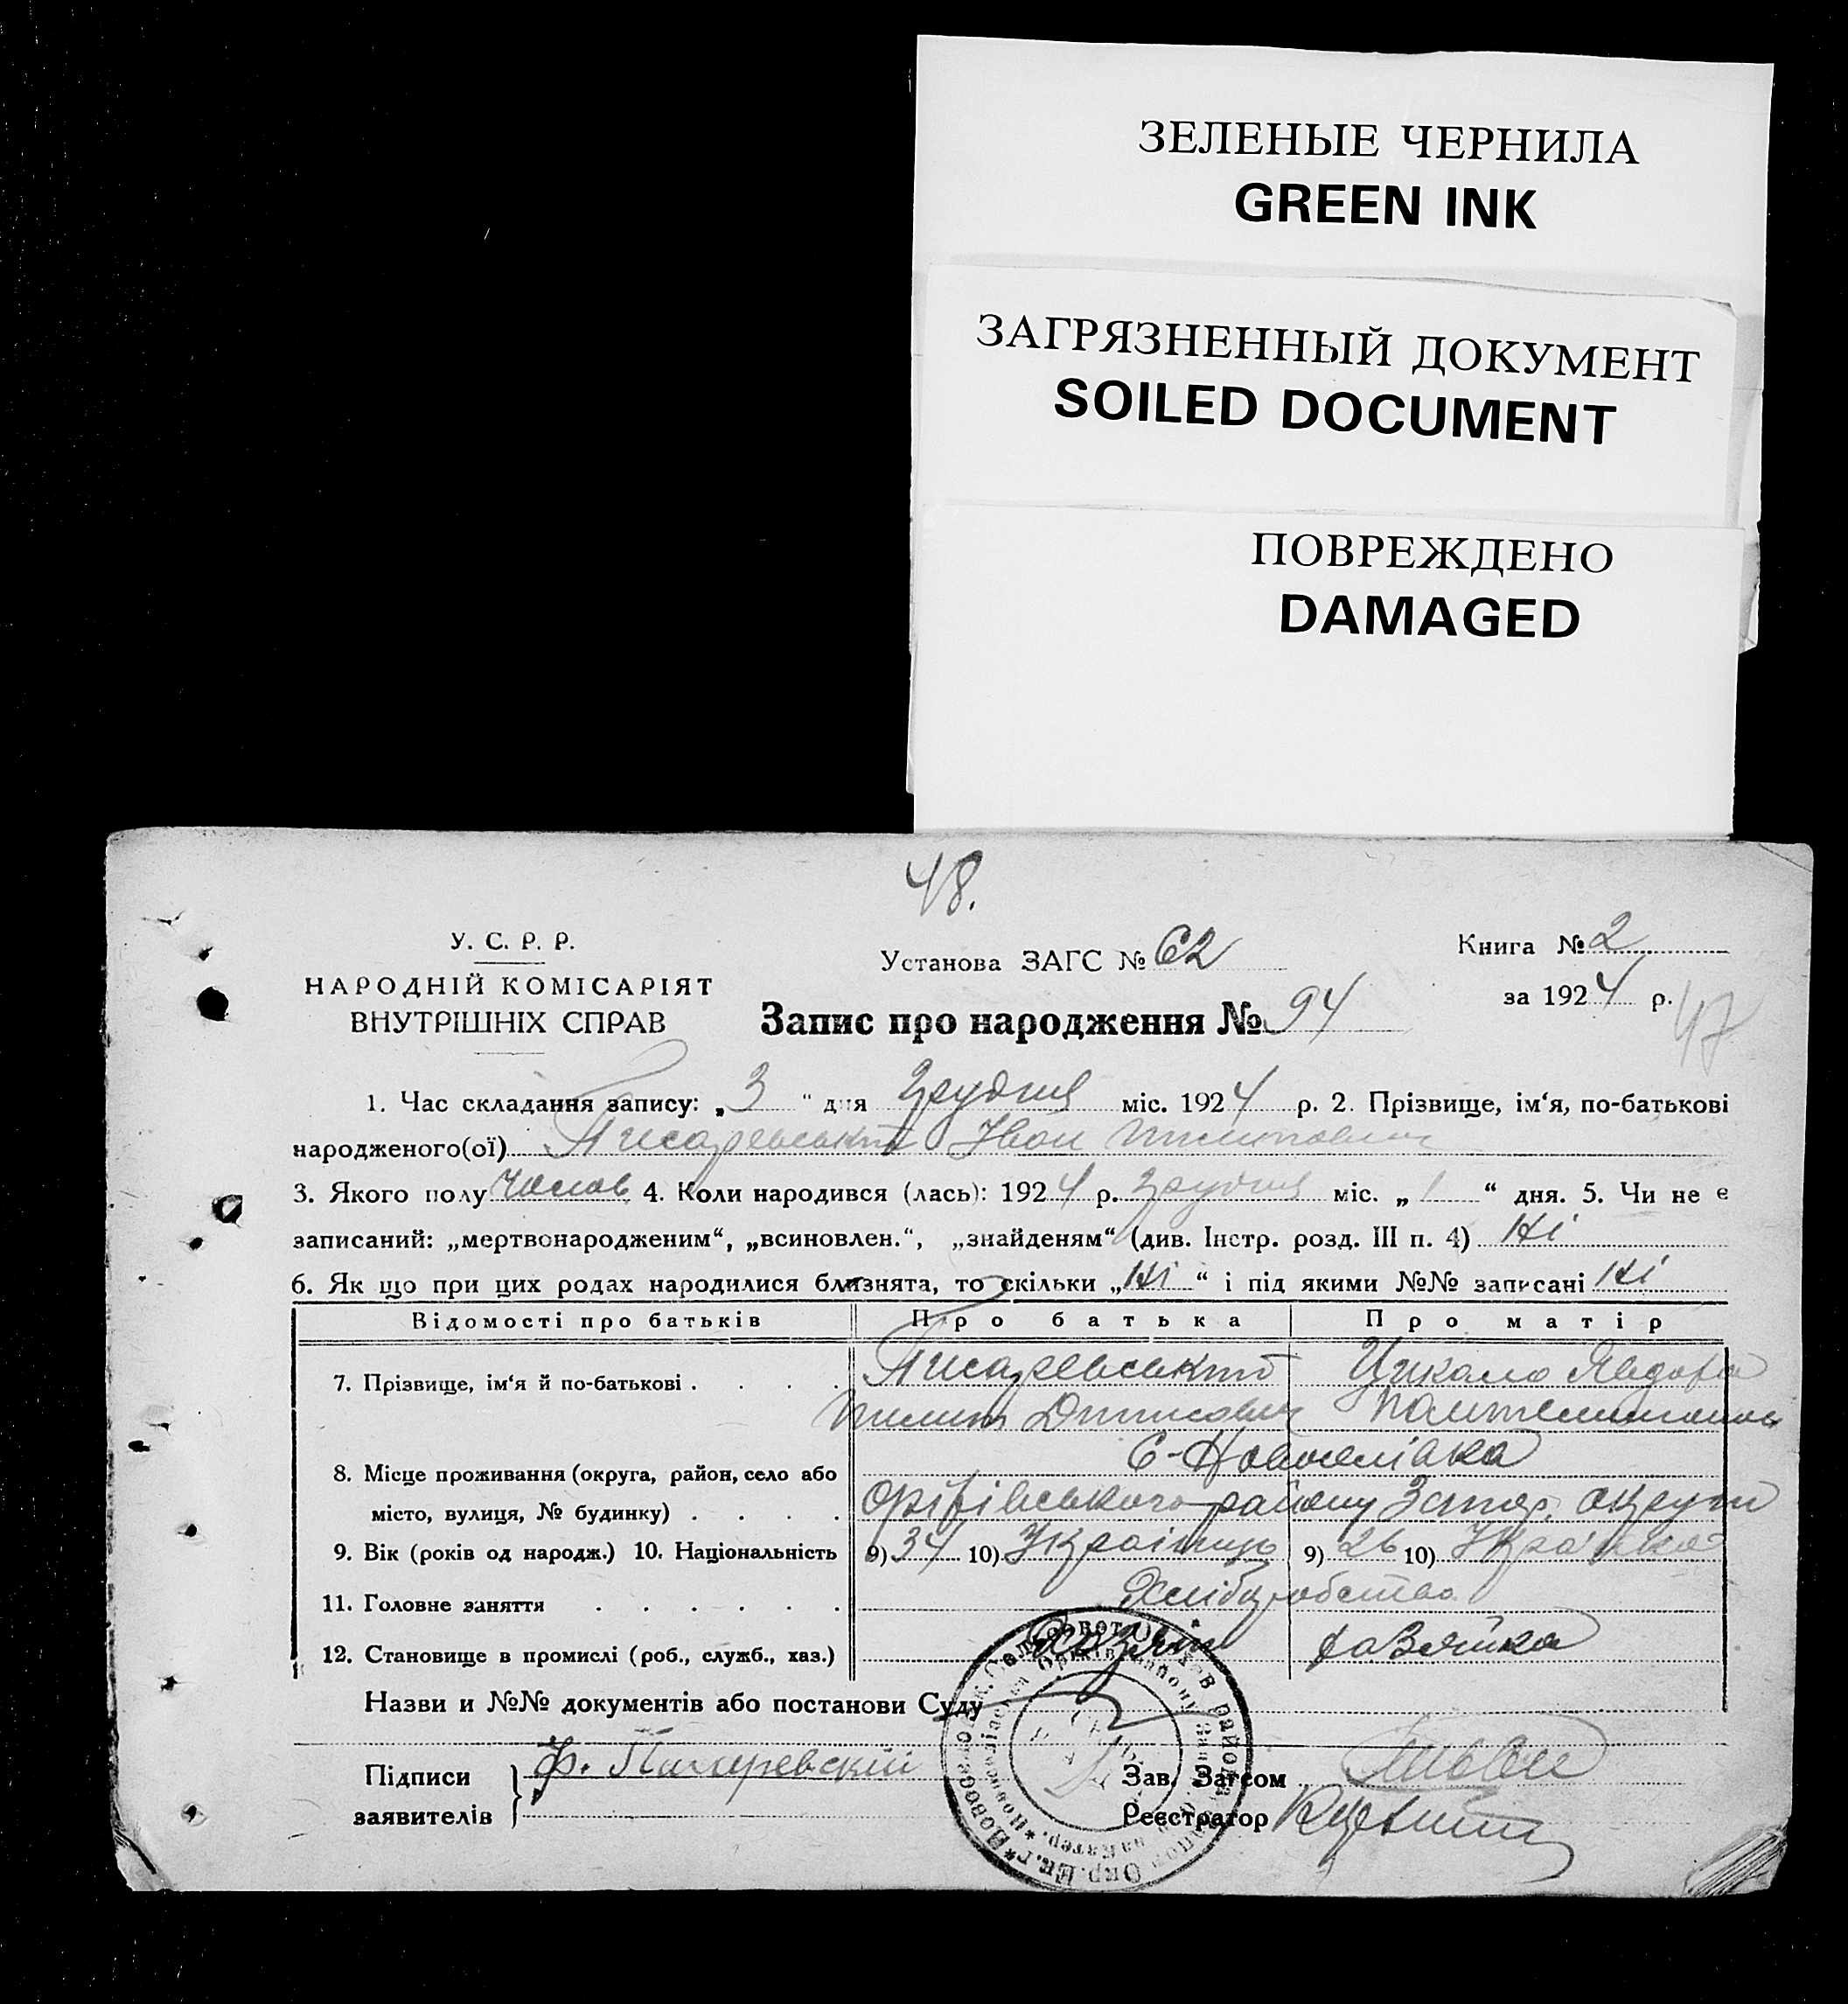 ЗЕЛЕНЫЕ ЧЕРНИЛА
GREEN INK
ЗАГРЯЗНЕННЫЙ ДОКУМЕНТ
SOILED DOCUMENT
ПОВРЕЖДЕНО
DAMAGED
48.
У. С. Р. Р.
НАРОДНІЙ КОМІСАРІЯТ
ВНУТРІШНІХ СПРАВ
Установа ЗАГС № 62
Запис про народження № 94
Книга № 2
за 1924 р.
47
1. Час складання запису: „3“ дня Грудня міс. 1924 р. 2. Прізвище, ім‘я, по-батькові
народженого(ої) Писаревський Іван Пилипович
3. Якого полу Чолов. 4. Коли народився (лась): 1924 р. Грудня міс. „1“ дня. 5. Чи не є
записаний: „мертвонародженим“, „всиновлен.“, „знайденям“ (див. Інстр. розд. III п. 4) Ні
6. Як що при цих родах народилися близнята, то скільки „Ні“ і під якими №№ записані Ні
Відомості про батьків Про батька Про матір
7. Прізвище, ім‘я й по-батькові . . . . Писаревський Цикало Явдоха
Пилип
С-Новоселівка
8. Місце проживання (округа, район, село або
місто, вулиця, № будинку) . . . . Оріхівського району Запор. округи
9. Вік (років од народж.) 10. Національність 9) 34 10) Українець 9) 26 10) Українка
11. Головне заняття . . . . . . Хліборобство
12. Становище в промислі (роб., служб., хаз.) Хазяїн Хазяйка
Назви и №№ документів або постанови Суду
Підписи
заявителів
Ф. Писаревский
Зав. Загсом
Реєстратор